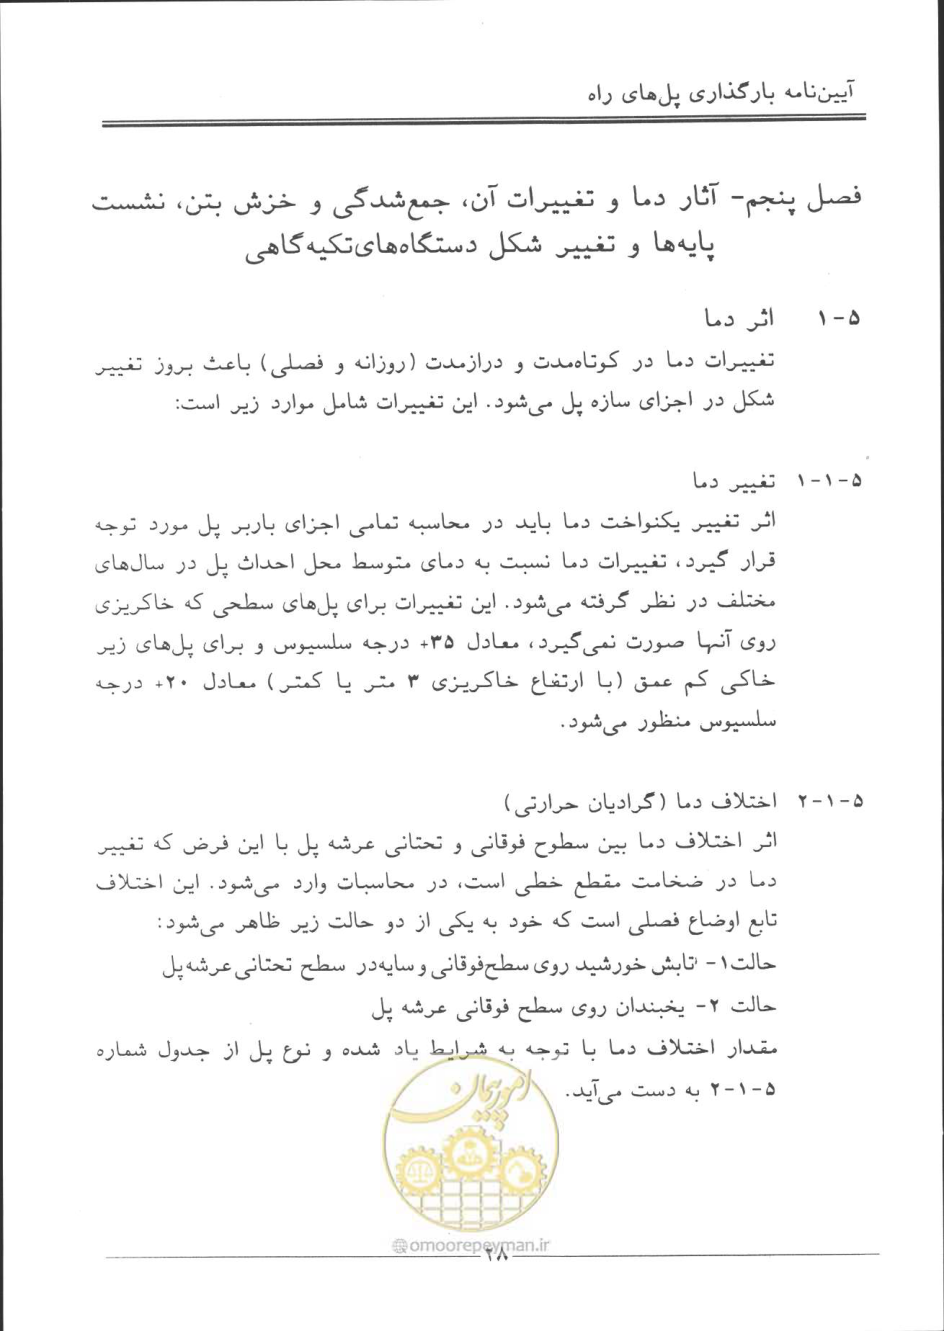 آیین‌نامه بارگذاری پل‌های راه
فصل پنجم- آثار دما و تغییرات آن، جمع‌شدگی و خزش بتن، نشست
پایه‌ها و تغییر شکل دستگاه‌های‌تکیه‌گاهی
۵-۱ اثر دما
تغییرات دما در کوتاه‌مدت و درازمدت (روزانه و فصلی) باعث بروز تغییر
شکل در اجزای سازه پل می‌شود. این تغییرات شامل موارد زیر است:
۵-۱-۱ تغییر دما
اثر تغییر یکنواخت دما باید در محاسبه تمامی اجزای باربر پل مورد توجه
قرار گیرد، تغییرات دما نسبت به دمای متوسط محل احداث پل در سال‌های
مختلف در نظر گرفته می‌شود. این تغییرات برای پل‌های سطحی که خاکریزی
روی آنها صورت نمی‌گیرد، معادل ۳۵+ درجه سلسیوس و برای پل‌های زیر
خاکی کم عمق (با ارتفاع خاکریزی ۳ متر یا کمتر) معادل ۲۰+ درجه
سلسیوس منظور می‌شود.
۵-۱-۲ اختلاف دما (گرادیان حرارتی)
اثر اختلاف دما بین سطوح فوقانی و تحتانی عرشه پل با این فرض که تغییر
دما در ضخامت مقطع خطی است، در محاسبات وارد می‌شود. این اختلاف
تابع اوضاع فصلی است که خود به یکی از دو حالت زیر ظاهر می‌شود:
حالت۱- تابش خورشید روی سطح‌فوقانی و سایه‌در سطح تحتانی عرشه‌پل
حالت ۲- یخبندان روی سطح فوقانی عرشه پل
مقدار اختلاف دما با توجه به شرایط یاد شده و نوع پل از جدول شماره
۵-۱-۲ به دست می‌آید.
امور پیمان
@omoorepeyman.ir
۲۸